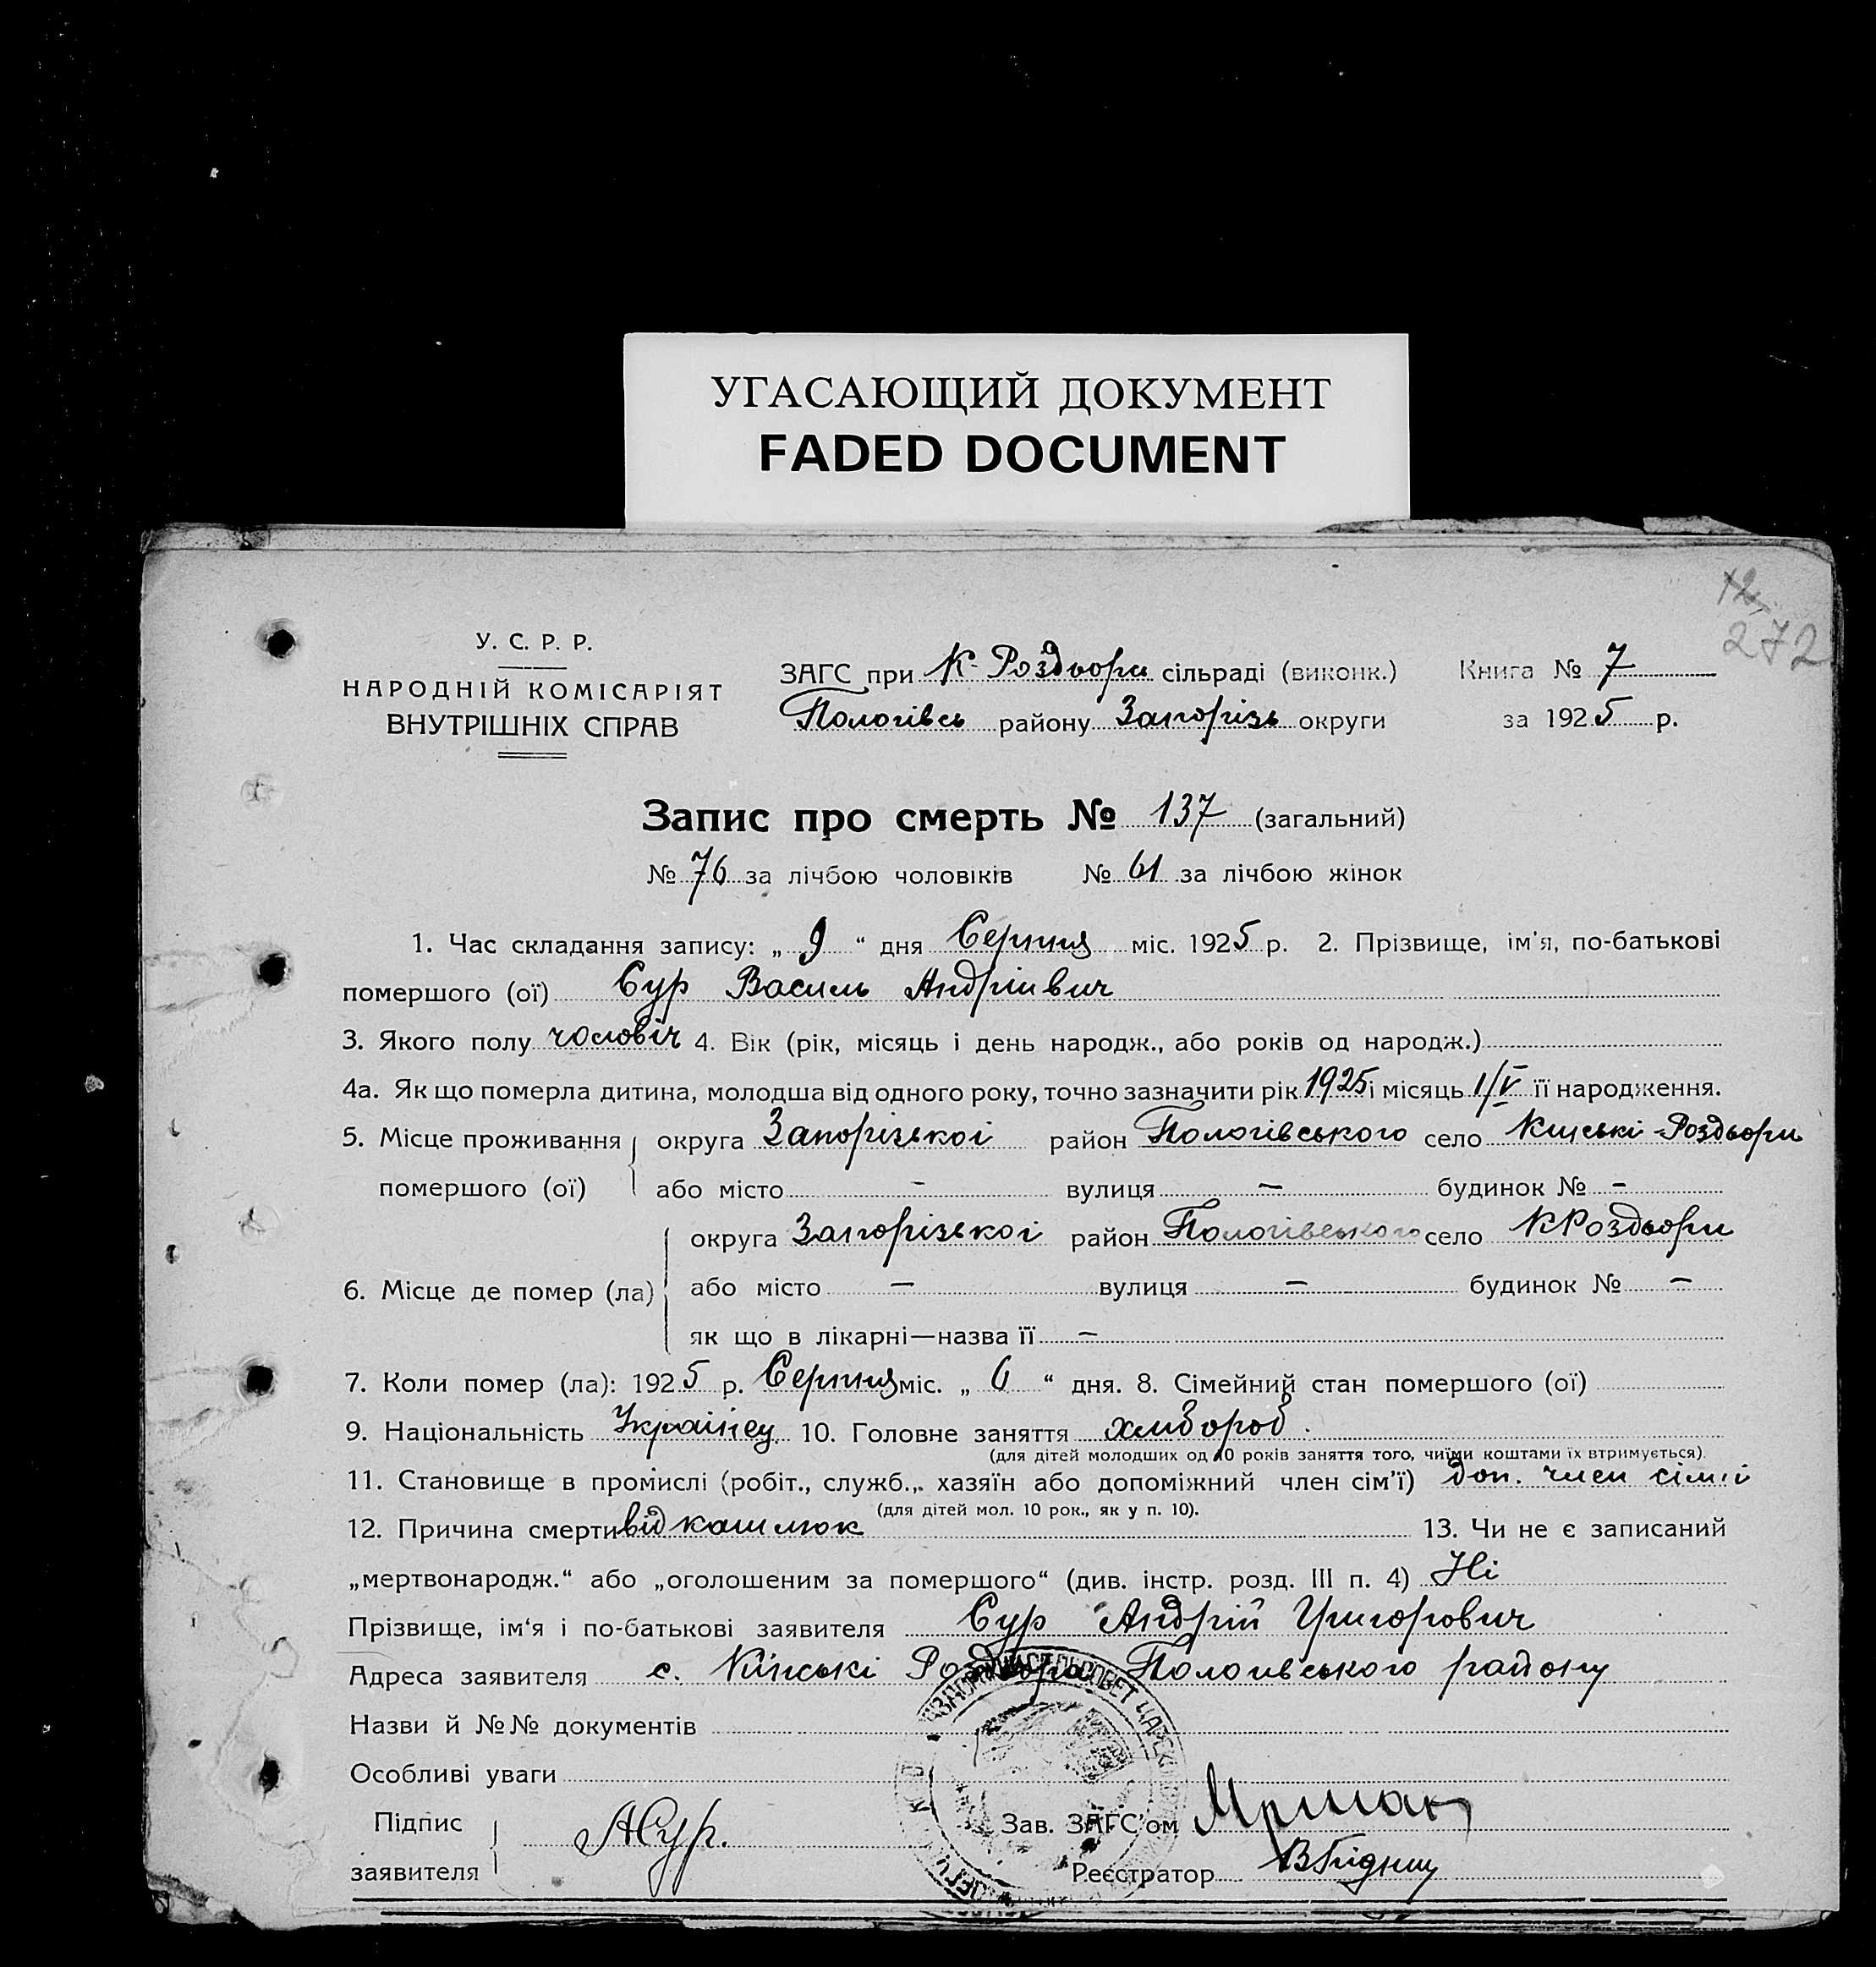 УГАСАЮЩИЙ ДОКУМЕНТ
FADED DOCUMENT
12
272
У. С. Р. Р.
НАРОДНІЙ КОМІСАРІЯТ
ВНУТРІШНІХ СПРАВ
ЗАГС при К-Роздори сільраді (виконк.) Книга № 7
Пологівсь району Запорізь округи за 1925 р.
Запис про смерть № 137 (загальний)
№ 76 за лічбою чоловіків № 61 за лічбою жінок
1. Час складання запису: „ 9 “ дня Серпня міс. 1925 р. 2. Прізвище, ім'я, по-батькові
помершого (ої) Сур Василь Андрійвич
3. Якого полу чоловіч 4. Вік (рік, місяць і день народж., або років од народж.)
4а. Як що померла дитина, молодша від одного року, точно зазначити рік 1925 і місяць 1/V її народження.
5. Місце проживання округа Запорізької район Пологівського село Кінські-Роздори
помершого (ої) або місто – вулиця – будинок № –
округа Запорізької район Пологівського село К Роздори
6. Місце де помер (ла) або місто – вулиця – будинок № –
як що в лікарні—назва її –
7. Коли помер (ла): 1925 р. Серпня міс. „ 6 “ дня. 8. Сімейний стан помершого (ої)
9. Національність Українец 10. Головне заняття хлібороб.
(для дітей молодших од 10 років заняття того, чиїми коштами їх втримується).
11. Становище в промислі (робіт., служб., хазяїн або допоміжний член сім'ї) доп. член сімії
(для дітей мол. 10 рок., як у п. 10).
12. Причина смерти від кашлюк 13. Чи не є записаний
„мертвонародж.“ або „оголошеним за помершого“ (див. інстр. розд. III п. 4) Ні
Прізвище, ім'я і по-батькові заявителя Сур Андрій Григорович
Адреса заявителя с. Кінські Роздори Пологівського району
Назви й №№ документів
Особливі уваги
Підпис заявителя АСур. Зав. ЗАГС'ом
Реєстратор